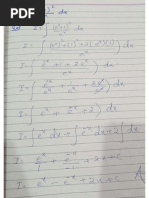 I = ∫ (eˣ+1)² / eˣ dx
Sol I = ∫ (eˣ+1)² / eˣ dx
I = ∫ ((eˣ)² + (1)² + 2(eˣ)(1) / eˣ) dx
I = ∫ (e²ˣ + 1 + 2eˣ / eˣ) dx
I = ∫ (e²ˣ/eˣ + 1/eˣ + 2eˣ/eˣ) dx
I = ∫ (eˣ + e⁻ˣ + 2) dx
I = ∫ eˣ dx + ∫ e⁻ˣ dx + 2∫ dx
I = eˣ/1 + e⁻ˣ/-1 + 2x + c
I = eˣ - e⁻ˣ + 2x + c A